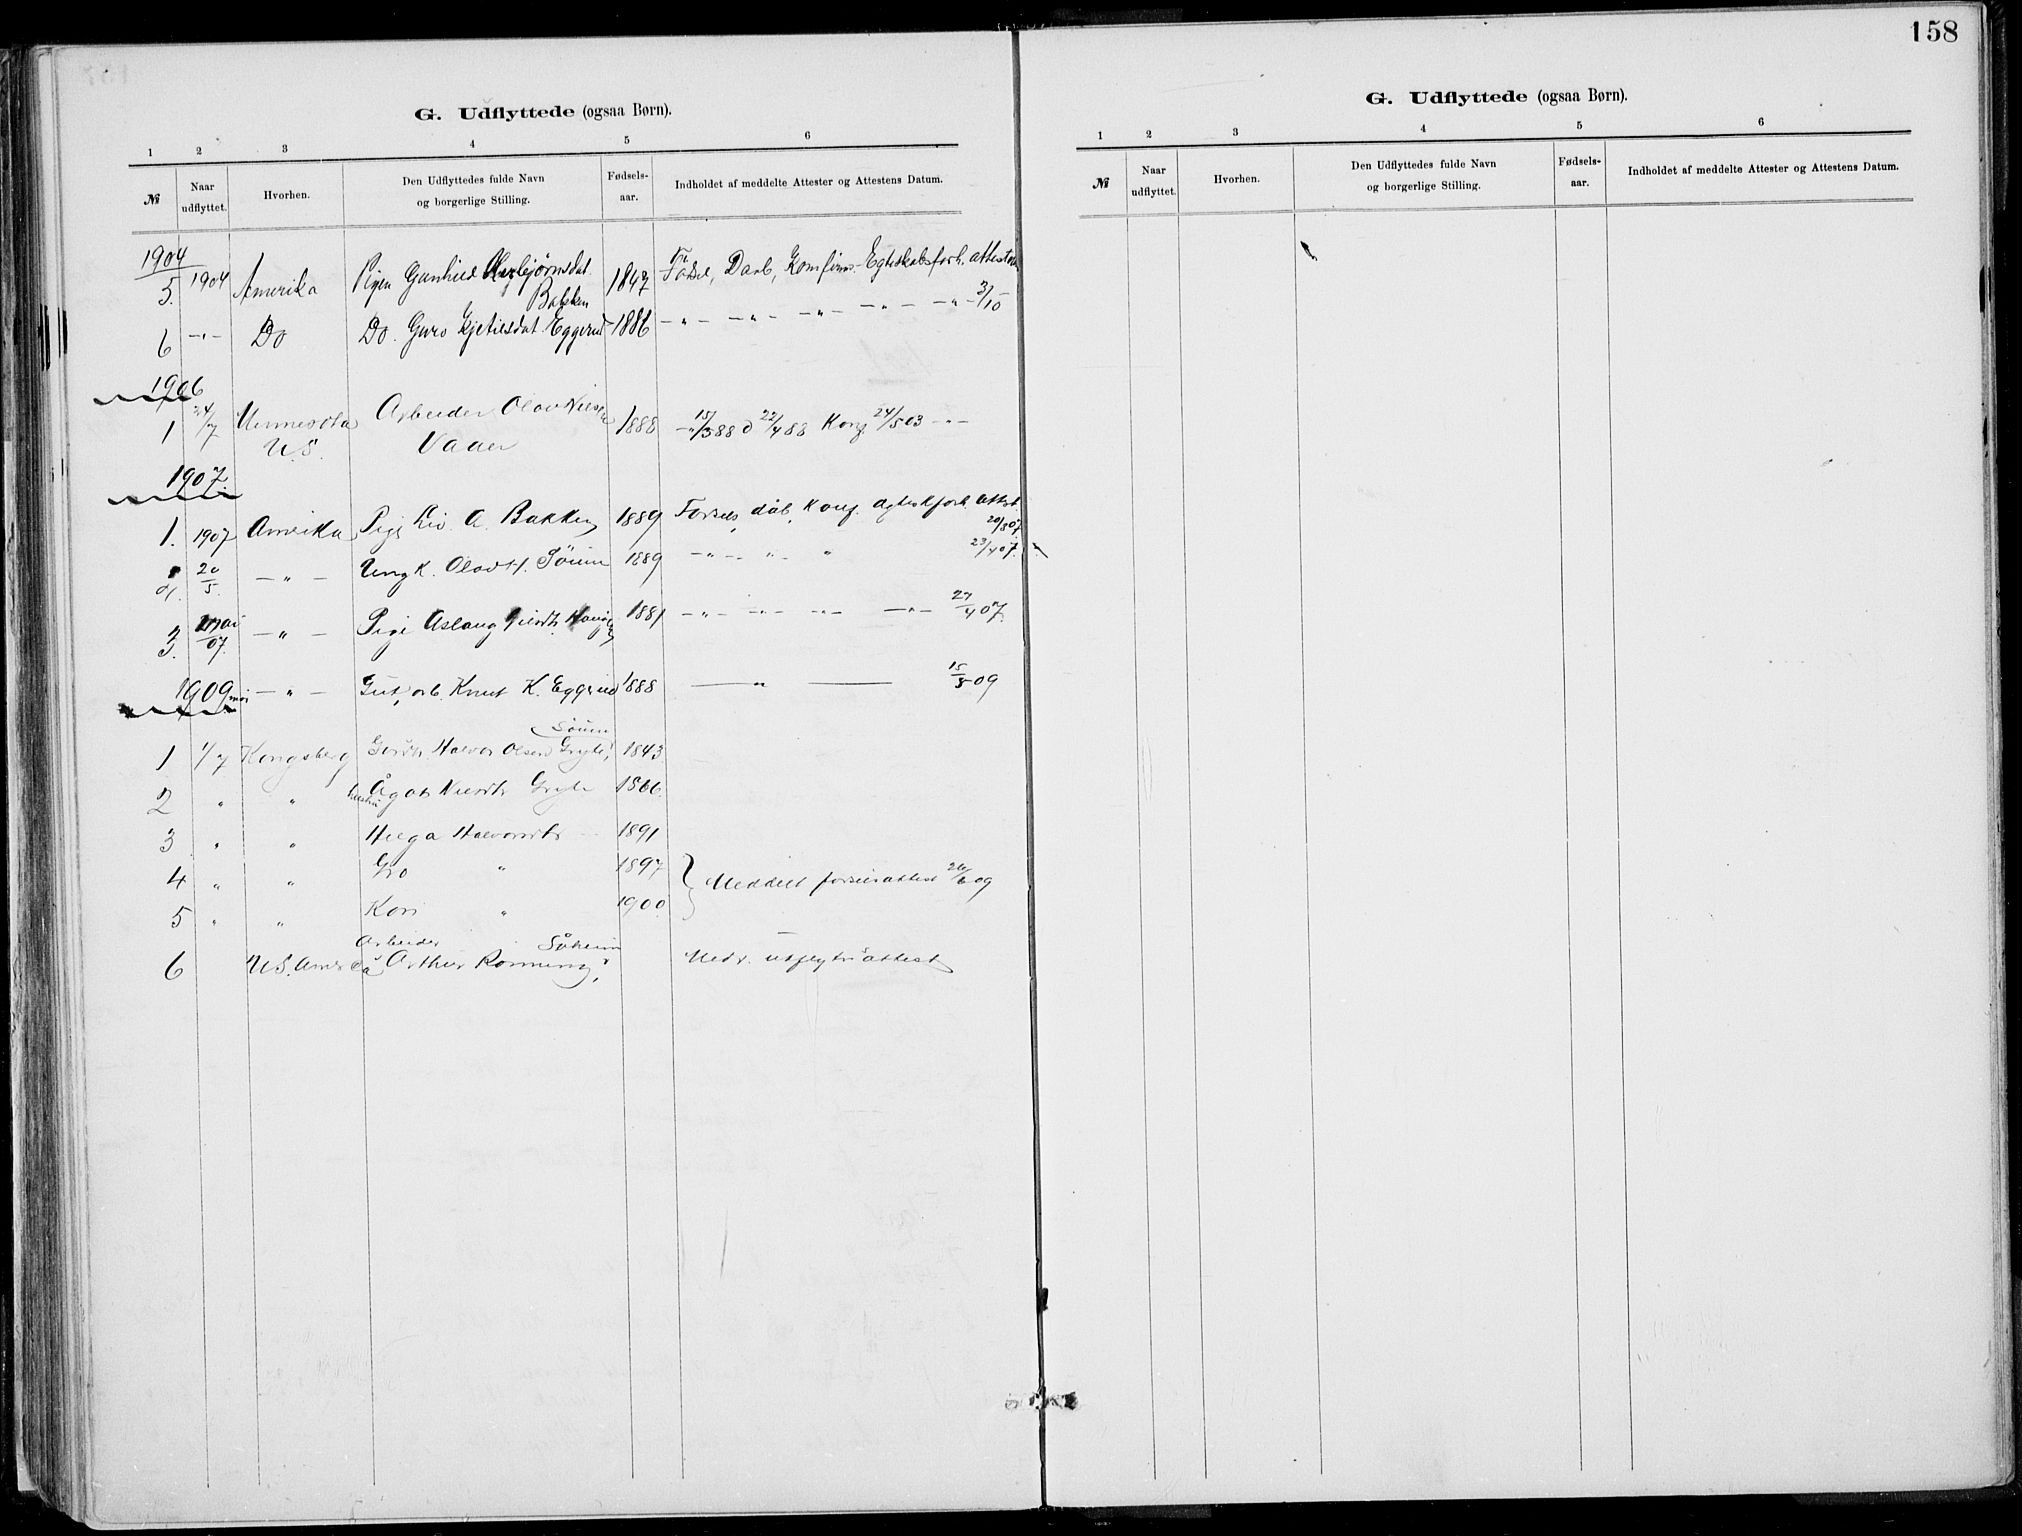 158
G. Udflyttede (ogsaa Børn).
1 2 3 4 5 6
№ Naar udflyttet. Hvorhen. Den Udflyttedes fulde Navn og borgerlige Stilling. Fødsels-aar. Indholdet af meddelte Attester og Attestens Datum.
1904
5. 1904 Amerika Pigen Gunhild 1847 Daab, Konfirm. Egteskabsforh. attest
Bakken 3/10
6 -"- Do Do. Guro Kjetilsdat. Eggerud 1886 -"- -"- -"- -"- -"-
1906
1 24/7 Minnesota Arbeider Olav Nilsen 1888 15/3 88 d 22/4 88 Konf 24/5 03 -"-
U.S. Vaaer
1907.
1. 1907 Amerika Pige Liv. A. Bakken 1889 Fødsels dåb, Konf. Attest
20/3 07.
2. 20/5. -"- Ungk. Olav H. Søum 1889 -"- " " 23/4 07.
3. mai 07. -"- Pige Aslaug 1881 -"- -"- -"- -"- 27/4 07.
1909 mai -"- Gut, arb. Knut K. Eggerud 1888 -"- 15/3 09
Søum
1 1/7 Kongsberg Halvor Olsen 1843
2 " " Ågot 1866
3 " " Helga Halvorsdtr 1891
4 " " Gro " 1897
Meddelt fødselsattest 26/6 09
5 " " Kari " 1900
Arbeider Såheim
6 U.S. Amerika Arthur Rønning, Medd. utflytn.attest
G. Udflyttede (ogsaa Børn).
1 2 3 4 5 6
№ Naar udflyttet. Hvorhen. Den Udflyttedes fulde Navn og borgerlige Stilling. Fødsels-aar. Indholdet af meddelte Attester og Attestens Datum.